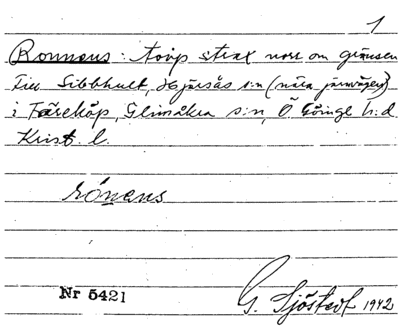 1
Ronnens: torp strax norr om gränsen
till Sibbhult, Hjärsås s:n (nära järnvägen)
i Färeköp, Glimåkra s:n, Ö. Göinge h:d
Krist. l.
rónens
Nr 5421
G. Sjöstedt 1942